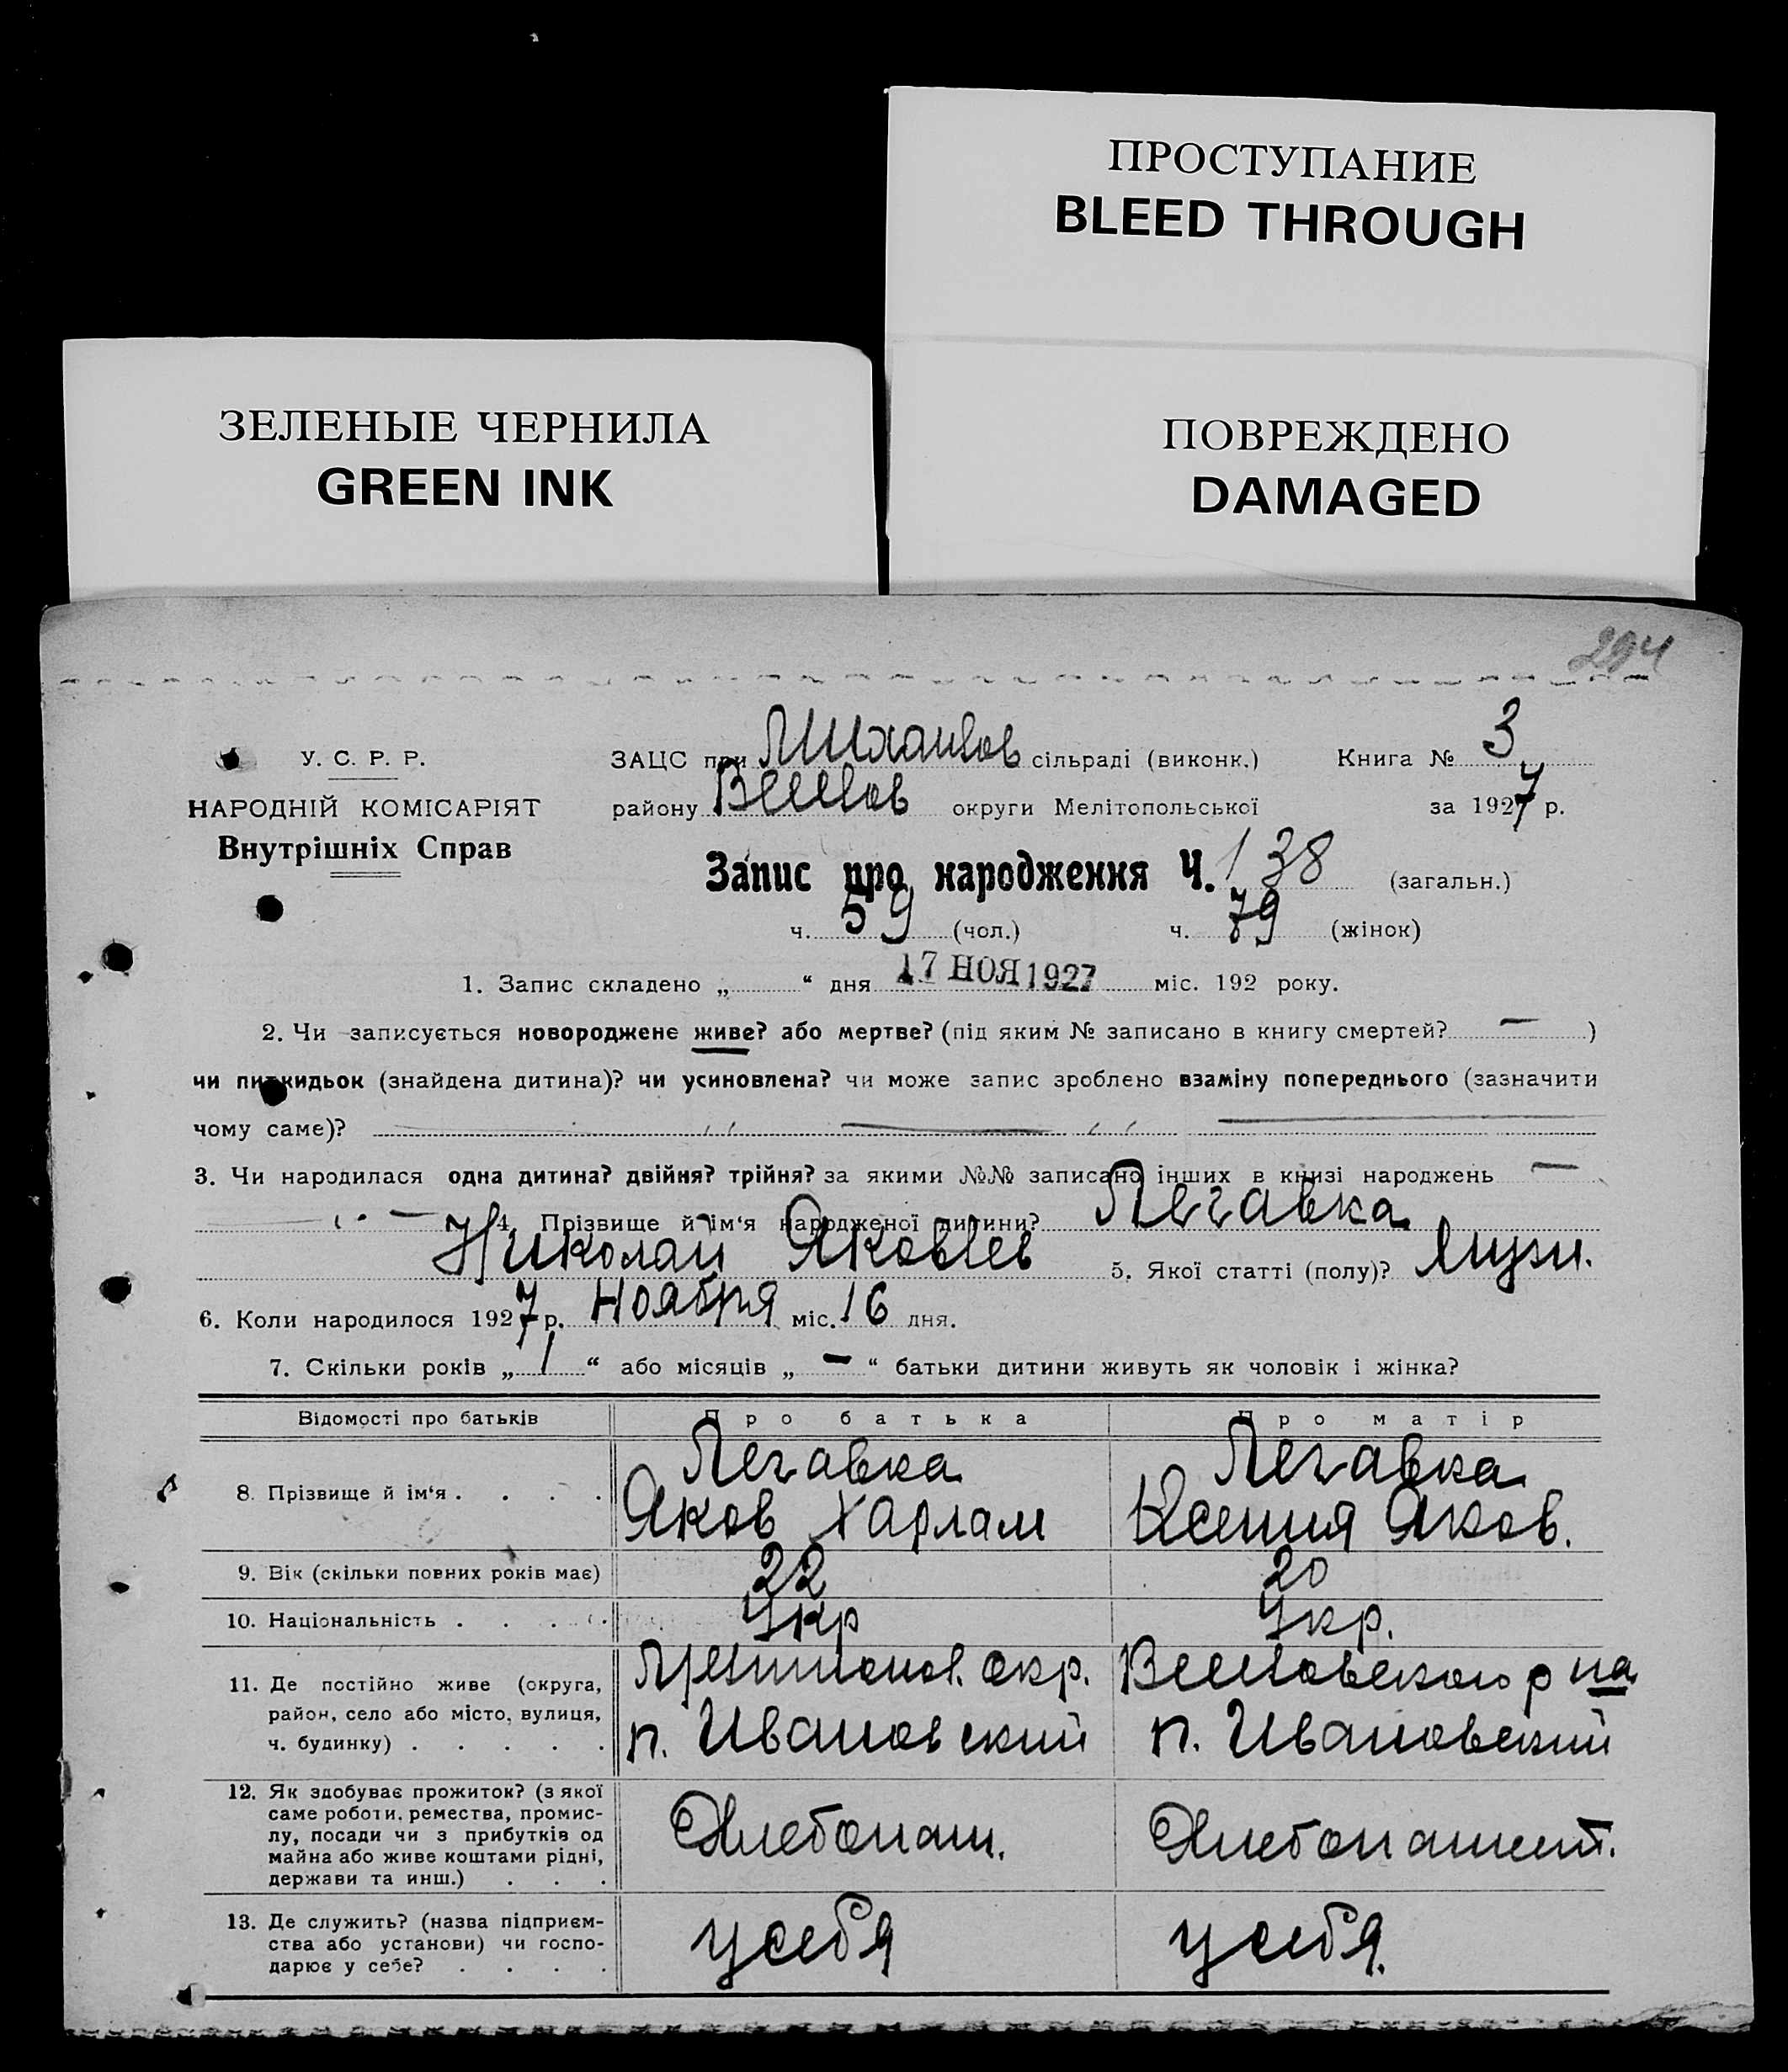 ПРОСТУПАНИЕ
BLEED THROUGH
ЗЕЛЕНЫЕ ЧЕРНИЛА
GREEN INK
ПОВРЕЖДЕНО
DAMAGED
294
У. С. Р. Р.
НАРОДНІЙ КОМІСАРІЯТ
Внутрішніх Справ
ЗАЦС при Михайлов сільраді (виконк.)
району Веселов округи Мелітопольської
Книга № 3
за 1927 р.
Запис про народження Ч. 138 (загальн.)
ч. 59 (чол.) ч. 79 (жінок)
1. Запис складено „ “ дня 17 НОЯ 1927 міс. 192 року.
2. Чи записується новороджене живе? або мертве? (під яким № записано в книгу смертей? — )
чи пидкидьок (знайдена дитина)? чи усиновлена? чи може запис зроблено взаміну попереднього (зазначити
чому саме)?
3. Чи народилася одна дитина? двійня? трійня? за якими №№ записано інших в книзі народжень —
4. Прізвище й ім‘я народженої дитини? Легавка
Николай Яковлев 5. Якої статті (полу)? Мужч.
6. Коли народилося 1927 р. Ноября міс. 16 дня.
7. Скільки років „ 1 “ або місяців „ — “ батьки дитини живуть як чоловік і жінка?
Відомості про батьків Про батька Про матір
8. Прізвище й ім‘я . . . . Легавка Легавка
Яков Харлам Ксения Яков.
9. Вік (скільки повних років має) 22 20
10. Національність . . . . Укр Укр.
11. Де постійно живе (округа,
район, село або місто, вулиця,
ч. будинку) . . . . .
окр.
п. Ивановский
Веселовского р на
п. Ивановский
12. Як здобуває прожиток? (з якої
саме роботи, ремества, промис-
лу, посади чи з прибутків од
майна або живе коштами рідні,
держави та инш.) . . .
Хлебопаш.
Хлебопашест.
13. Де служить? (назва підприєм-
ства або установи) чи госпо-
дарює у себе? . . . .
у себя
у себя.